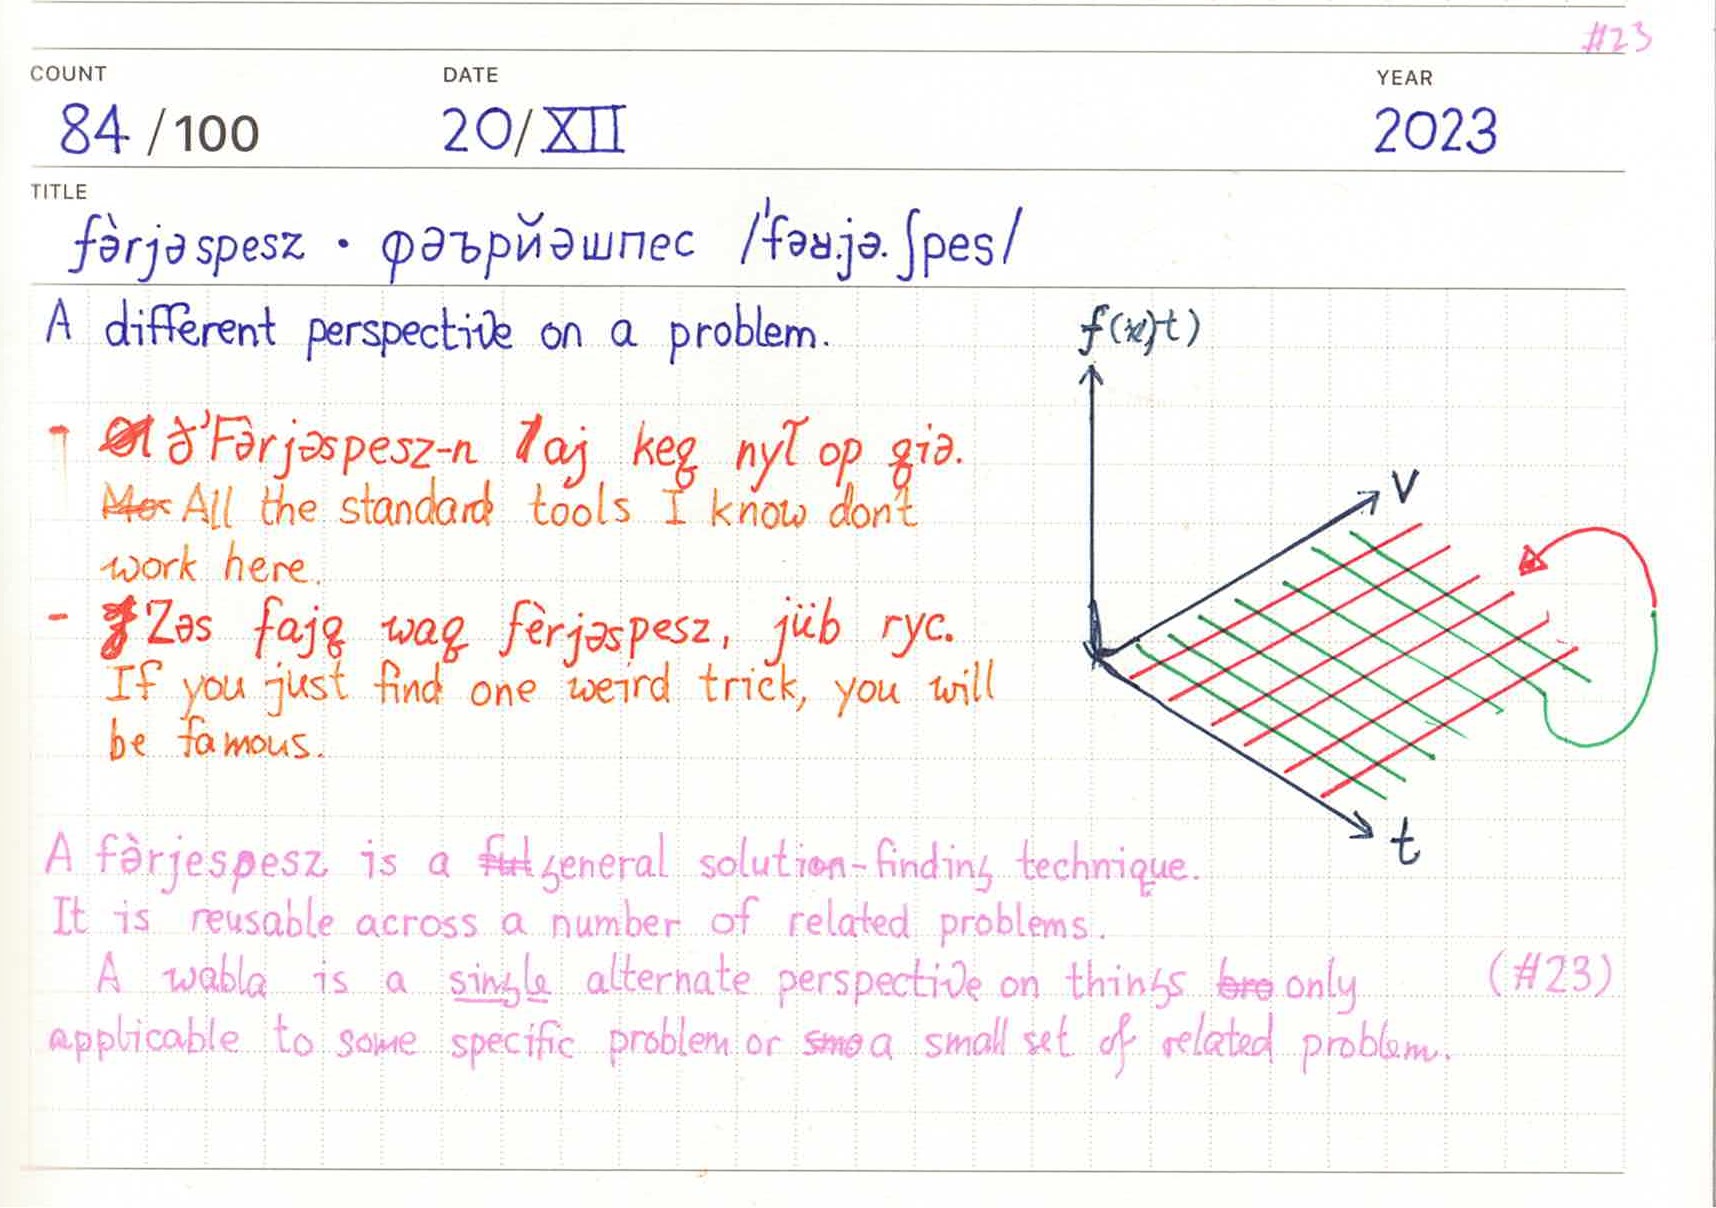 #23
COUNT DATE YEAR
84 /100 20/XII 2023
TITLE
fə̀rjəspesz • фəърйəшпес /ˈfəʁ.jə.ʃpes/
A different perspective on a problem.
f(x,t)
- ð'Fə̀rjəspesz-n aj keq nyl op qiə.
All the standard tools I know don't
work here.
- Zəs fajq waq fèrjəspesz, jüb ryc.
If you just find one weird trick, you will
be famous.
v
t
A fə̀rjespesz is a general solution-finding technique.
It is reusable across a number of related problems.
A wabla is a single alternate perspective on things only (#23)
applicable to some specific problem or a small set of related problem.